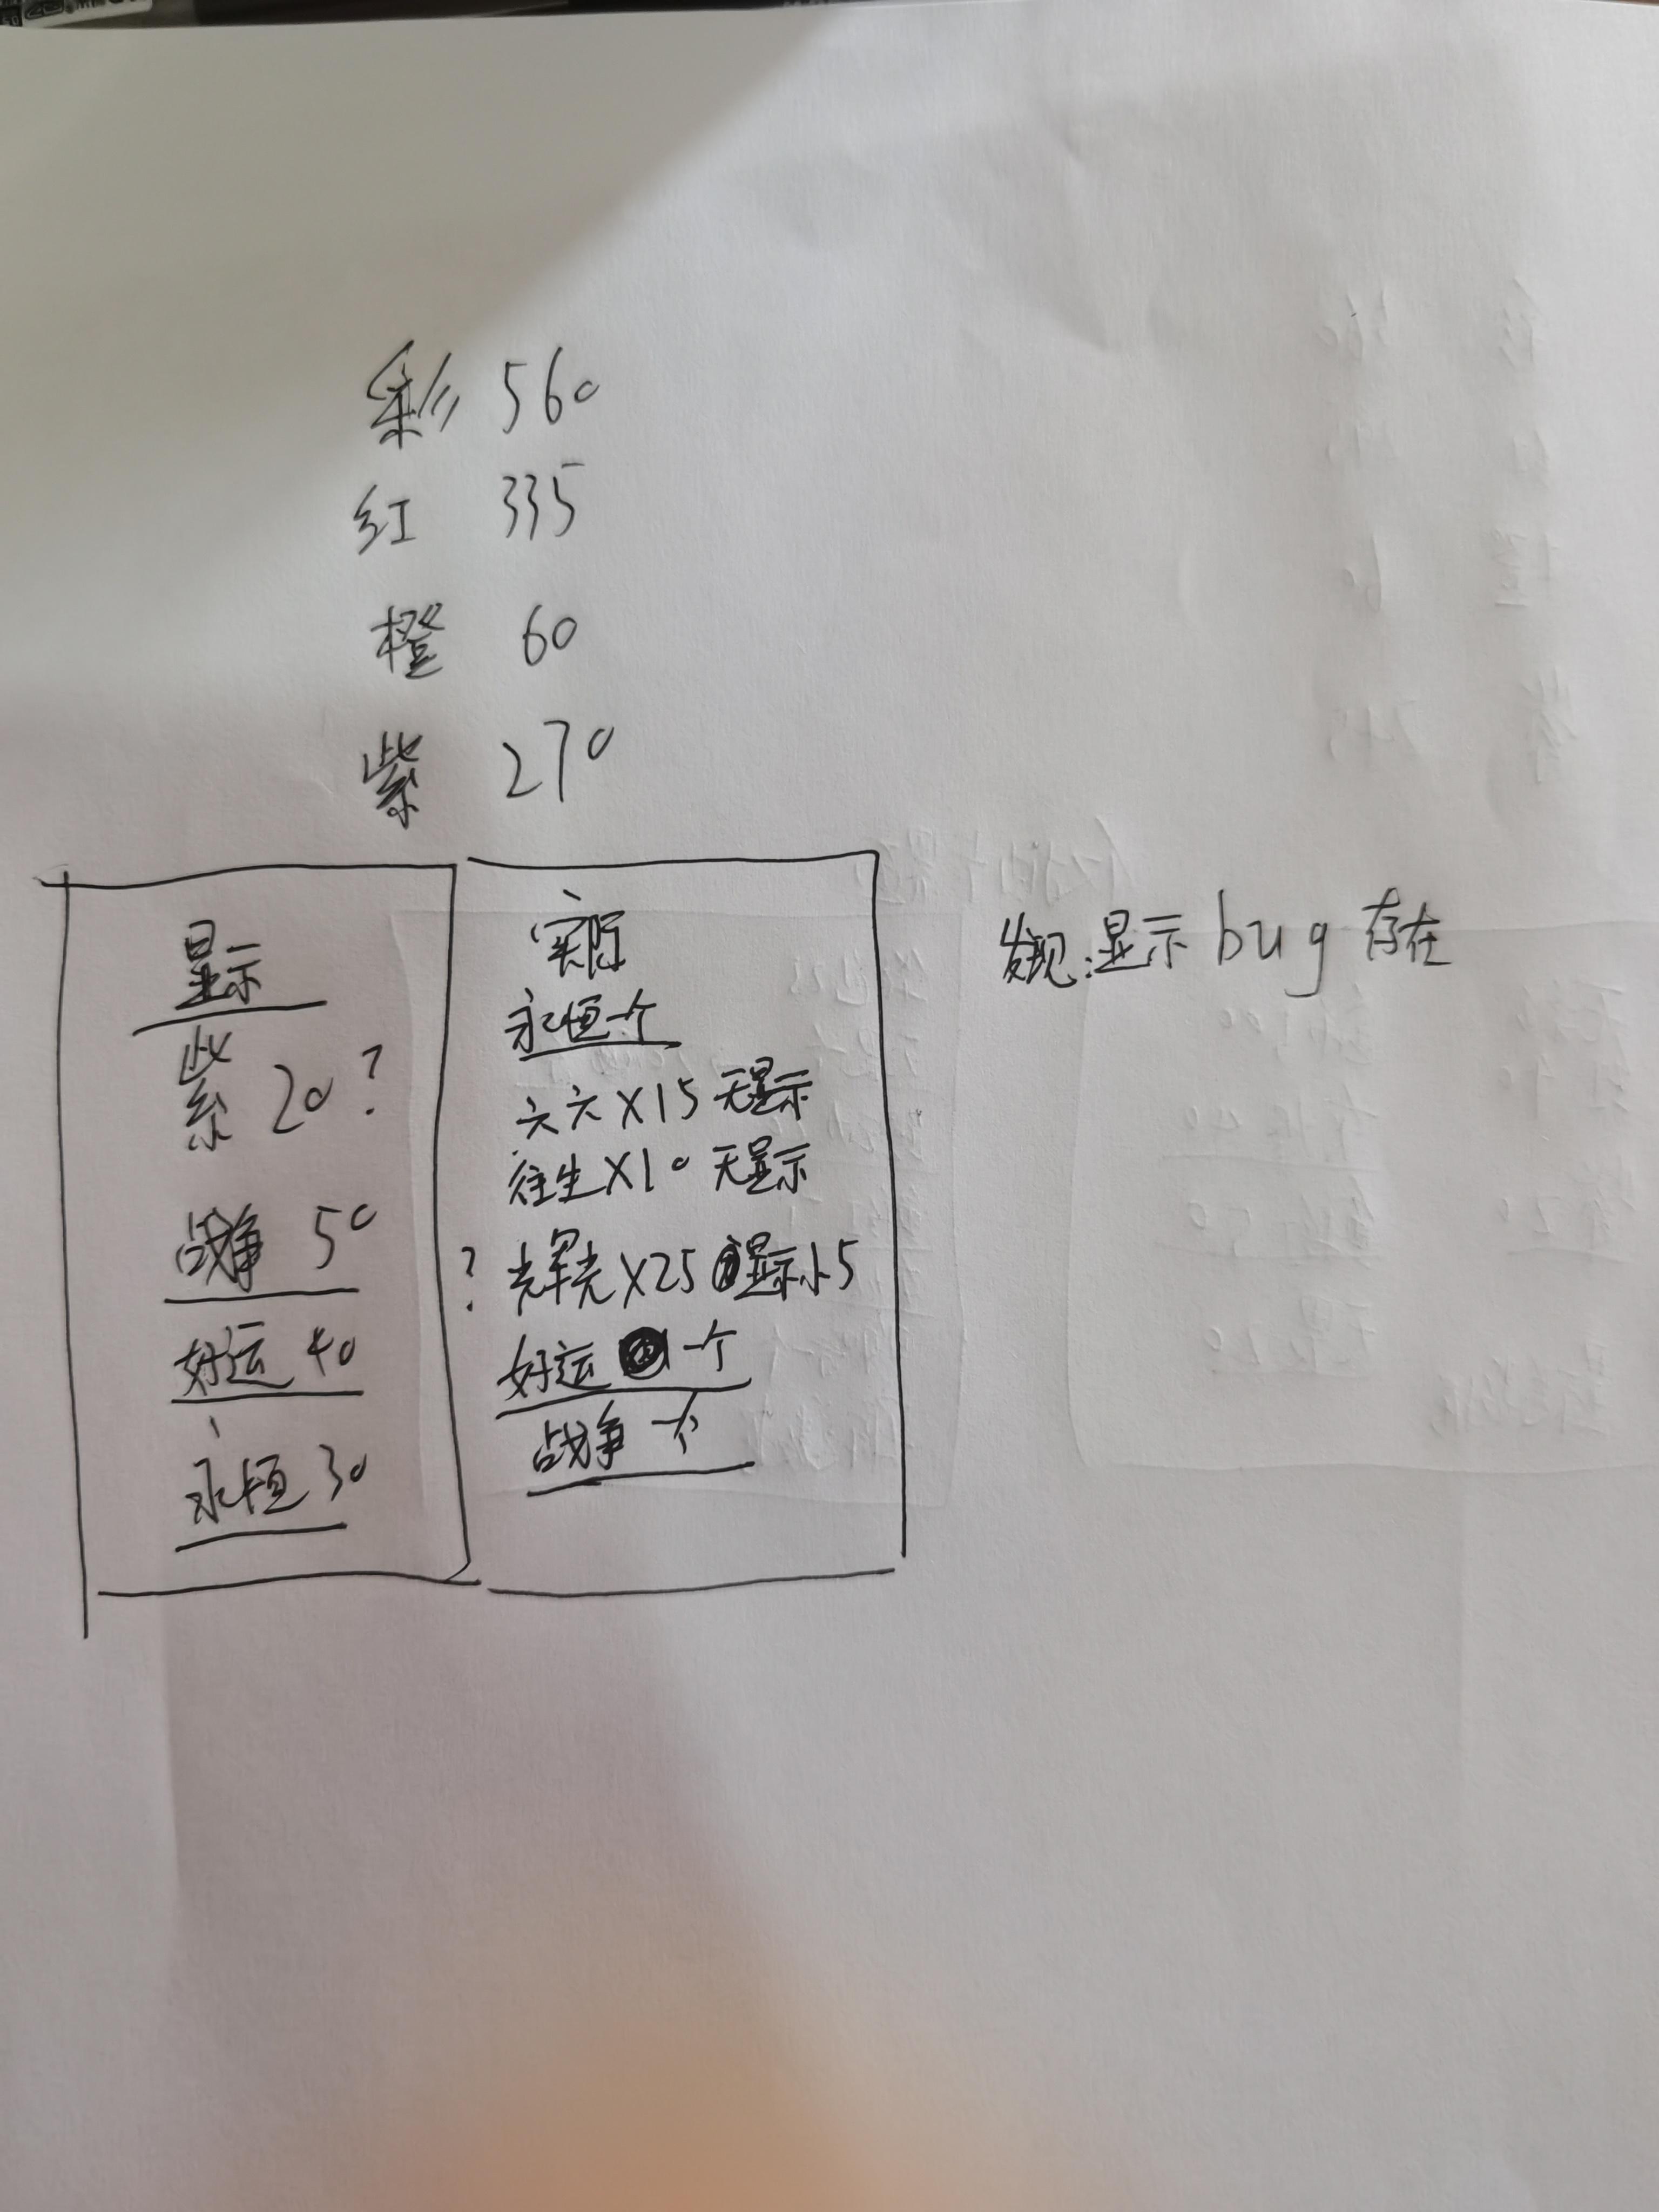 彩 560
红 335
橙 60
紫 270
显示
紫 20?
战争 50
好运 40
永恒 30
实际
永恒一个
六六X15 无显示
往生X10 无显示
? 辉光X25 显示15
好运 一个
战争 一个
发现:显示bug存在